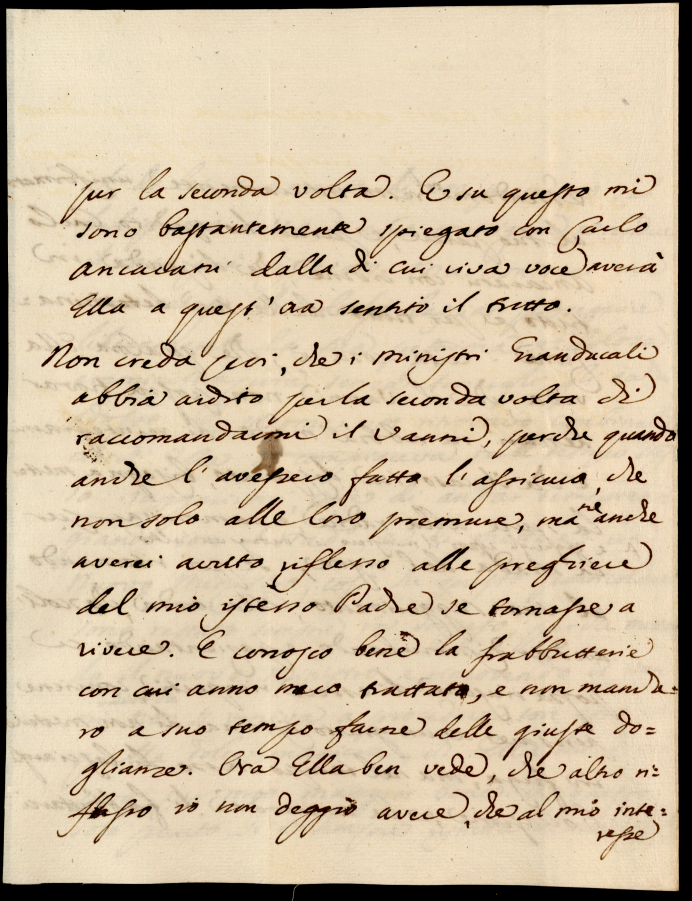 per la seconda volta. E su questo mi
sono bastantemente spiegato con Carlo
Ancarani dalla di cui viva voce averà
Ella a quest' ora sentito il tutto.
Non creda poi, che i Ministri Granducali
abbia ardito per la seconda volta di
raccomandarmi il Vanni, perche quando
anche l' avessero fatto l' assicuro, che
non solo alle loro premure, ma nè anche
averei avuto riflesso alle preghiere
del mio istesso Padre se tornasse a
vivere. E conosco bene la frabbutterie
con cui anno meco trattato, e non manda=
ro a suo tempo farne delle giuste do=
glianze. Ora Ella ben vede, che altro ri=
flesso io non deggio avere, che al mio inte=
resse